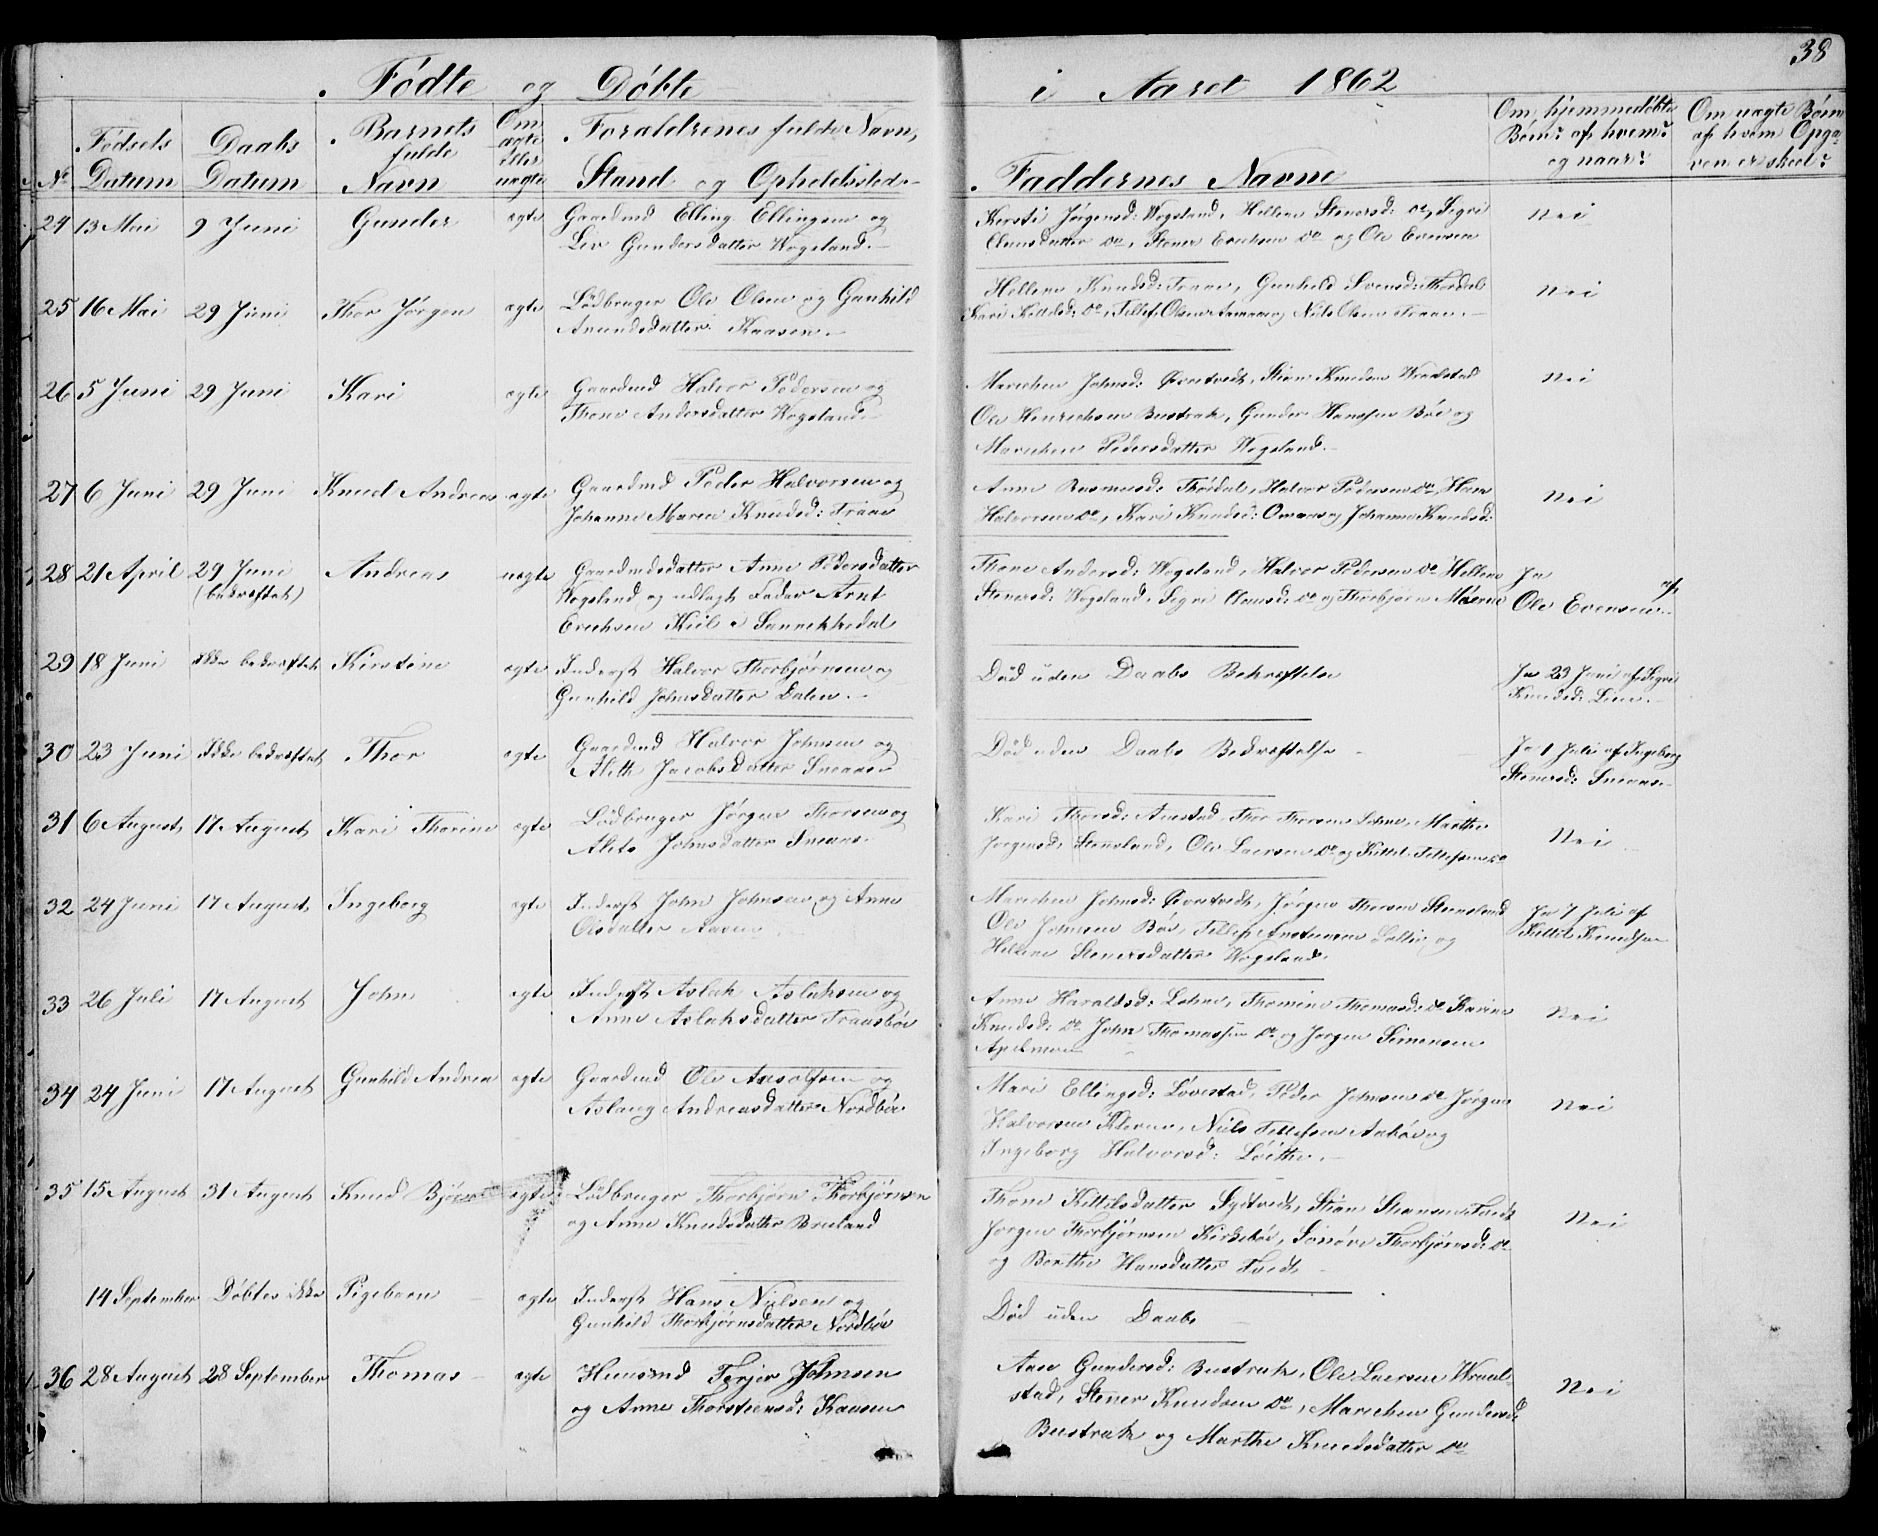 38
Fødte og Døbte i Aaret 1862
No
Fødsels Datum
Daabs Datum
Barnets fulde Navn
Om ægte eller uægte
Forældrenes fulde Navn, Stand og Opholdssted.
Faddernes Navne
Om hjemmedøbte Børn? af hvem? og naar?
Om uægte Børn af hvem Opgaven er skeet?
24 13 Mai 9 Juni Gunder ægte Gaardmd Elling Ellingsen og
Liv Gundersdatter Wogsland.
Kirsti Jørgensd: Wogsland, Hellene Stenersd: do, Segri
Clausdatter do, Stener Erichsen do og Ole Evensen
Nei
25 16 Mai 29 Juni Thor Jørgen ægte Lødbruger Ole Olsen og Gunhild
Amundsdatter Kaasen.
Hellene Knudsd: Traae, Gunhild Svensd: Thordal
Kari Kittelsd: do, Tellef Olsen og Niels Olsen Traae.
Nei
26 5 Juni 29 Juni Kari ægte Gaardmd Halvor Pedersen og
Thone Andersdatter Wogsland.
Marichen Johnsd: Øvertvedt, Stian Knudsen Wraalstad
Ole Henrichsen Bustrak, Gunder Hanssen Bøe og
Marichen Pedersdatter Wogsland.
Nei
27 6 Juni 29 Juni Knud Andreas ægte Gaardmd Peder Halvorsen og
Johanne Maren Knudsd: Traae
Anne Rasmusd: Thordal, Halvor Pedersen do, Hans
Halvorsen do, Kari Knudsd: og Johanne Knudsd:
Nei
28 21 April 29 Juni (bekræftet) Andreas uægte Gaardmdsdatter Anne Pedersdatter
Wogsland og udlagt Fader Arnt
Erichsen Kiil i Sannekkedal
Thone Andersd: Wogsland, Halvor Pedersen do Hellene
Stenersd: Wogsland, Segri Clausd: do og Thorbjørn Moene
Ja af
Ole Evensen.
29 18 Juni Ikke bekræftet Kirstine ægte Inderst Halvor Thorbjørnsen og
Gunhild Johnsdatter Dalen.
Død uden Daabs Bekræftelse
Ja 23 Juni af Segri
Knudsd: Lien.
30 23 Juni Ikke bekræftet Thor ægte Gaardmd Halvor Johnsen og
Aleth Jacobsdatter Sneaas
Død uden Daabs Bekræftelse
Ja 1 Juli af Ingeborg
Stenersd: Sneaas.
31 6 August 17 August Kari Thorine ægte Lødbruger Jørgen Thorsen og
Alete Johnsdatter Sneaas.
Kari Thorsd: Aanstad, Thor Thorsen Lohne, Marthe
Jørgensd: Stensland, Ole Laersen do og Kittel Tellefsen do
Nei
32 24 Juni 17 August Ingeborg ægte Inderst John Johnsen og Anne
Olsdatter Aaven
Marichen Johnsd: Øvertvedt, Jørgen Thorsen Stensland
Ole Johnsen Bøe, Tellef og
Hellene Stenersdatter Wogsland.
Ja 7 Juli af
Kittil Knudsen
33 26 Juli 17 August John ægte Inderst Aslak Aslaksen og
Anne Aslaksdatter Traasbøe
Anne Haraldsd: Lohne, Thomine Thomasd: do Karine
Knudsd: do John Thomassen do og Jørgen Simensen
Apelmoen
Nei
34 24 Juni 17 August Gunhild Andrea ægte Gaardmd Ole Ansolfsen og
Aslaug Andreasdatter Nordbøe
Mari Ellingsd: Løvestad, Peder Johnsen do Jørgen
Halvorsen Kleven, Niels Tellefsen Aabøe og
Ingeborg Halvorsd: Løithe.
Nei
35 15 August 31 August Knud Bjørn ægte Lødbruger Thorbjørn Thorbjørnsen
og Anne Knudsdatter Breiland
Thone Kittilsdatter Sydtvedt, Stian Stiansen Tvedt
Jørgen Thorbjørnsen Kirkebøe, Sønøve Thorbjørnsd: do
og Berthe Hansdatter Tvedt
Nei
14 September Døbtes ikke Pigebarn ægte Inderst Hans Nielsen og
Gunhild Thorbjørnsdatter Nordbøe
Død uden Daab
36 28 August 28 September Thomas ægte Huusmd Terjer Johnsen
og Anne Thorstensd: Kaasen
Aase Gundersd: Bustrak, Ole Laersen Wraal-
stad, Stener Knudsen do, Marichen Gundersd
Bustrak og Marthe Knudsdatter do
Nei